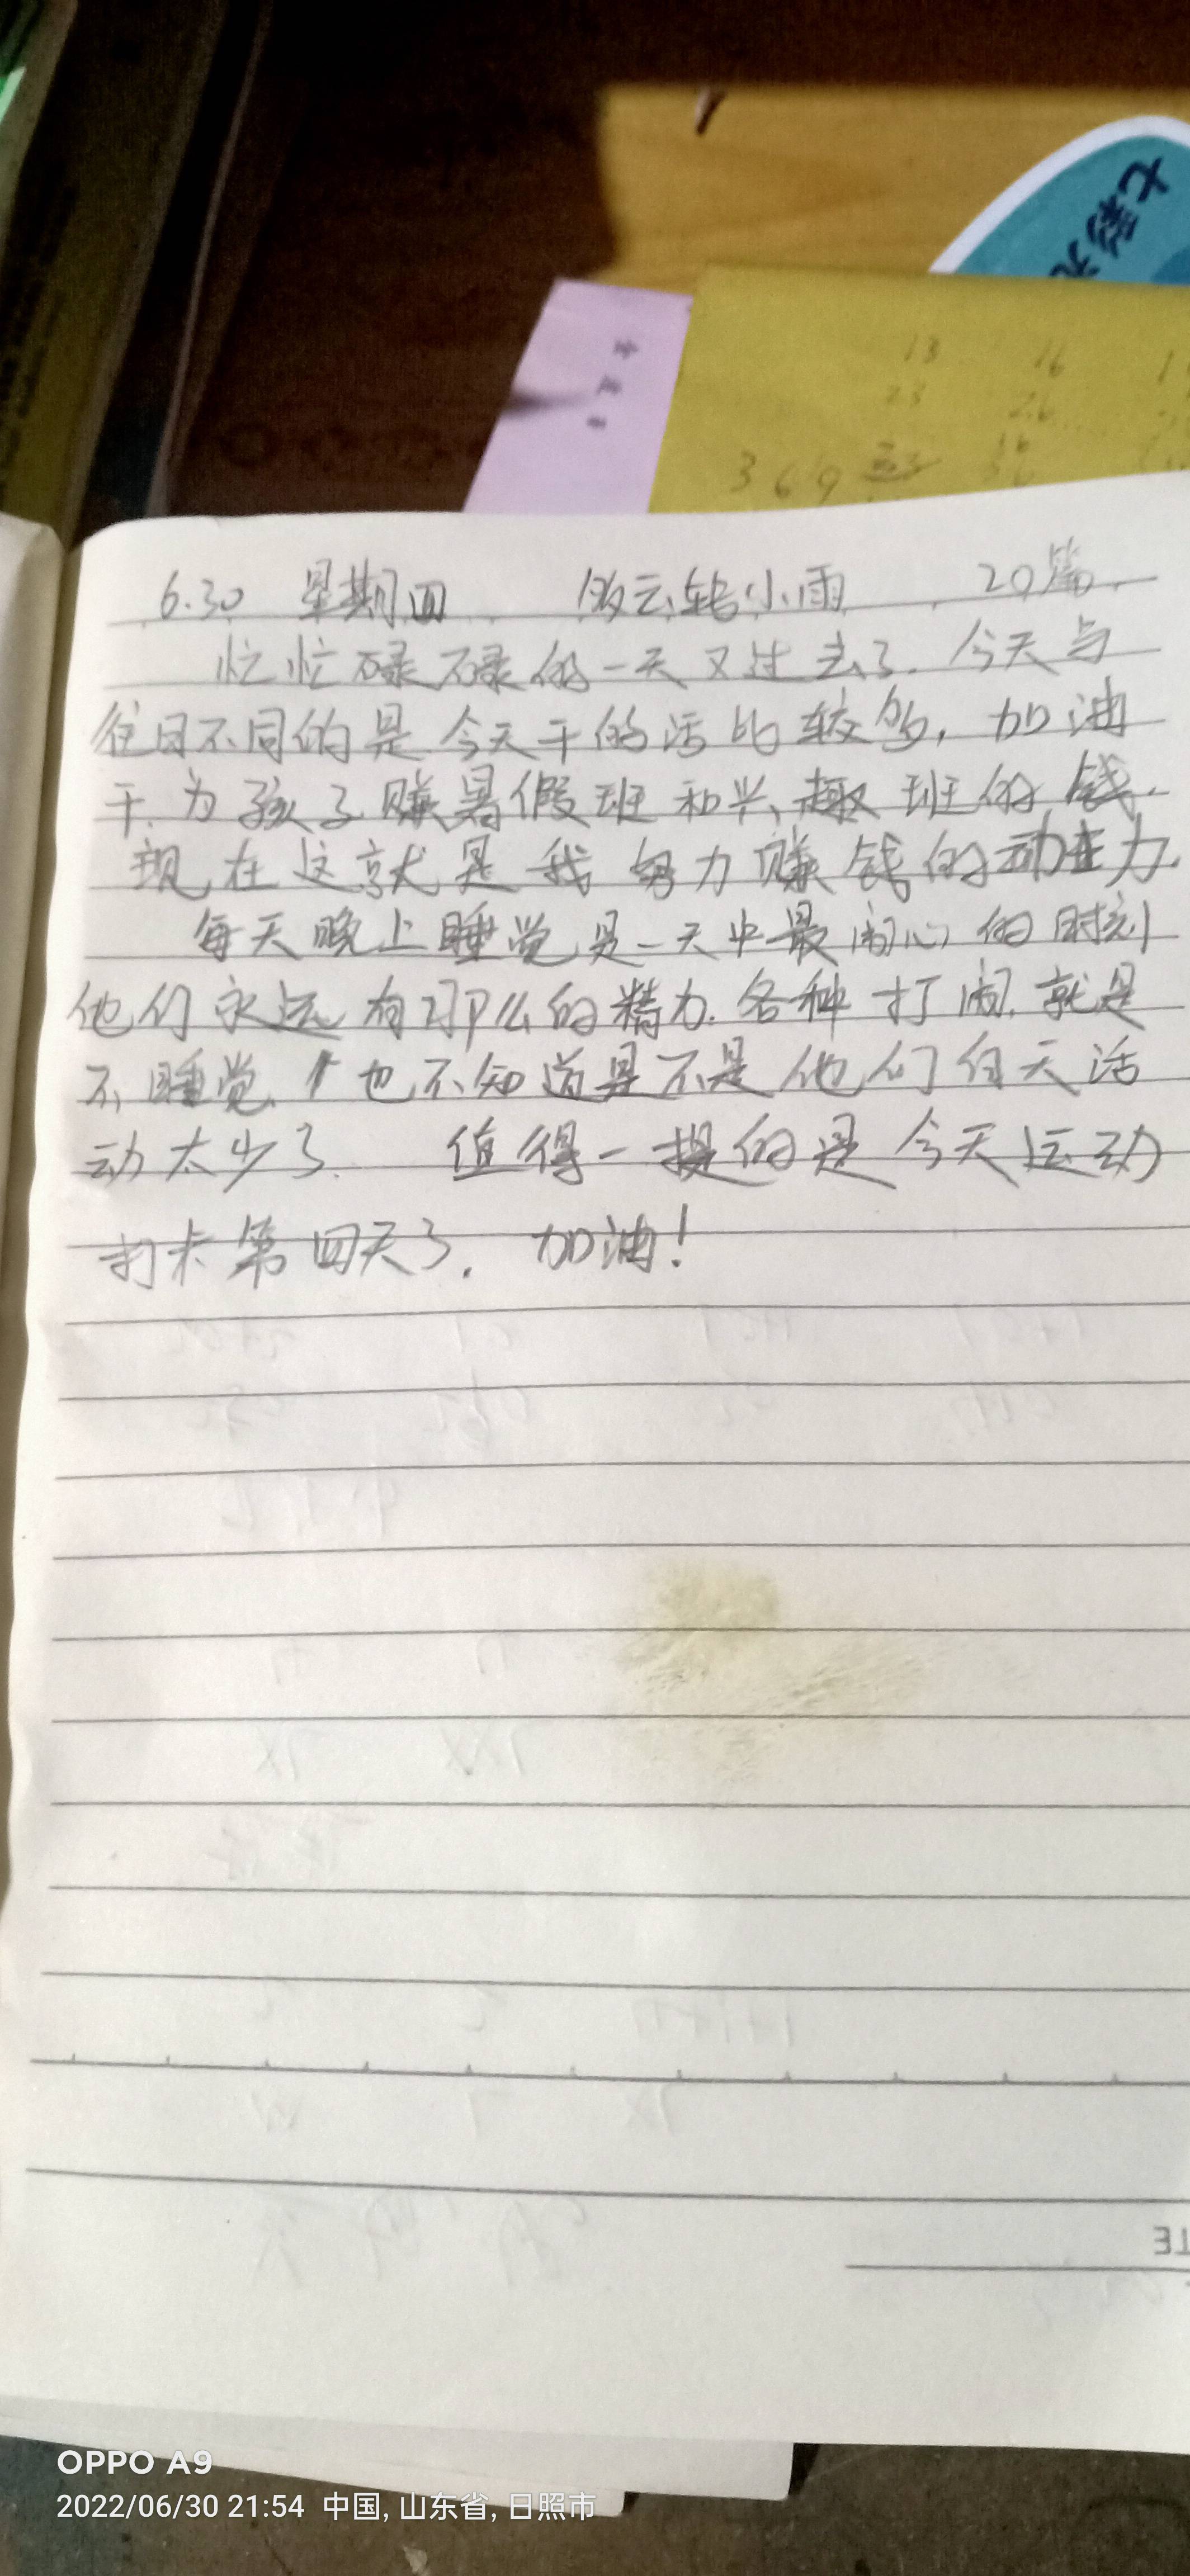 13 16
23 26
16
369
6.30 星期四 多云转小雨 20篇.
忙忙碌碌的一天又过去了.今天与
往日不同的是今天干的活比较多,加油
干.为孩子赚暑假班和兴趣班的钱.
现在这就是我努力赚钱的动力.
每天晚上睡觉是一天中最闹心的时刻
他们永远有那么的精力.各种打闹.就是
不睡觉.也不知道是不是他们白天活
动太少了. 值得一提的是今天运动
打卡第四天了. 加油!
TE
OPPO A9
2022/06/30 21:54 中国, 山东省, 日照市